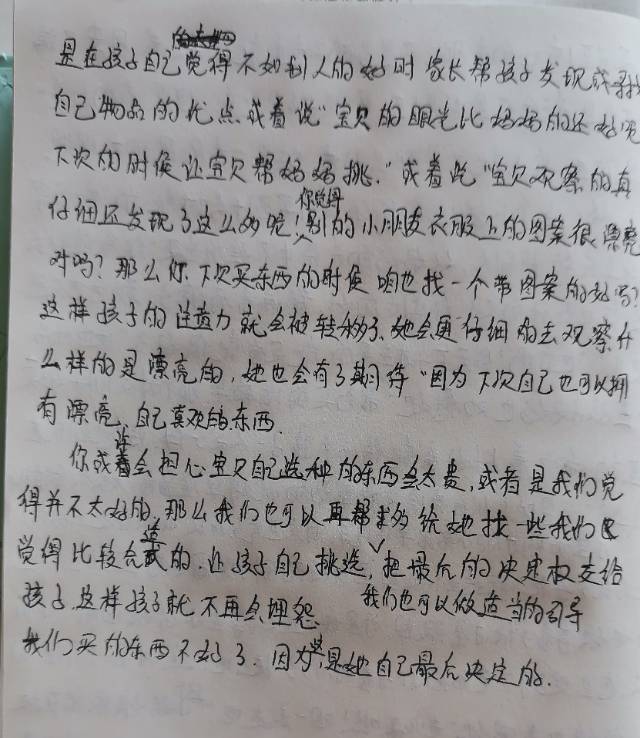 是在孩子自己觉得不如别人的好时家长帮孩子发现或寻找
自己物品的优点或着说“宝贝的眼光比妈妈的还好呢
下次的时候让宝贝帮妈妈挑.”或着说“宝贝观察的真
仔细还发现了这么多呢！你觉得别的小朋友衣服上的图案很漂亮
对吗？那么你下次买东西的时候咱也找一个带图案的好吗？
这样孩子的注意力就会被转移了、她会更仔细的去观察什
么样的是漂亮的，她也会有了期待“因为下次自己也可以拥
有漂亮、自己喜欢的东西.
你或许会担心宝贝自己选种的东西会太贵，或者是我们觉
得并不太好的，那么我们也可以再帮她给她找一些我们
觉得比较合适的.让孩子自己挑选，把最后的决定权交给
孩子这样孩子就不再会埋怨 我们也可以做适当的引导
我们买的东西不好了.因为是她自己最后决定的.